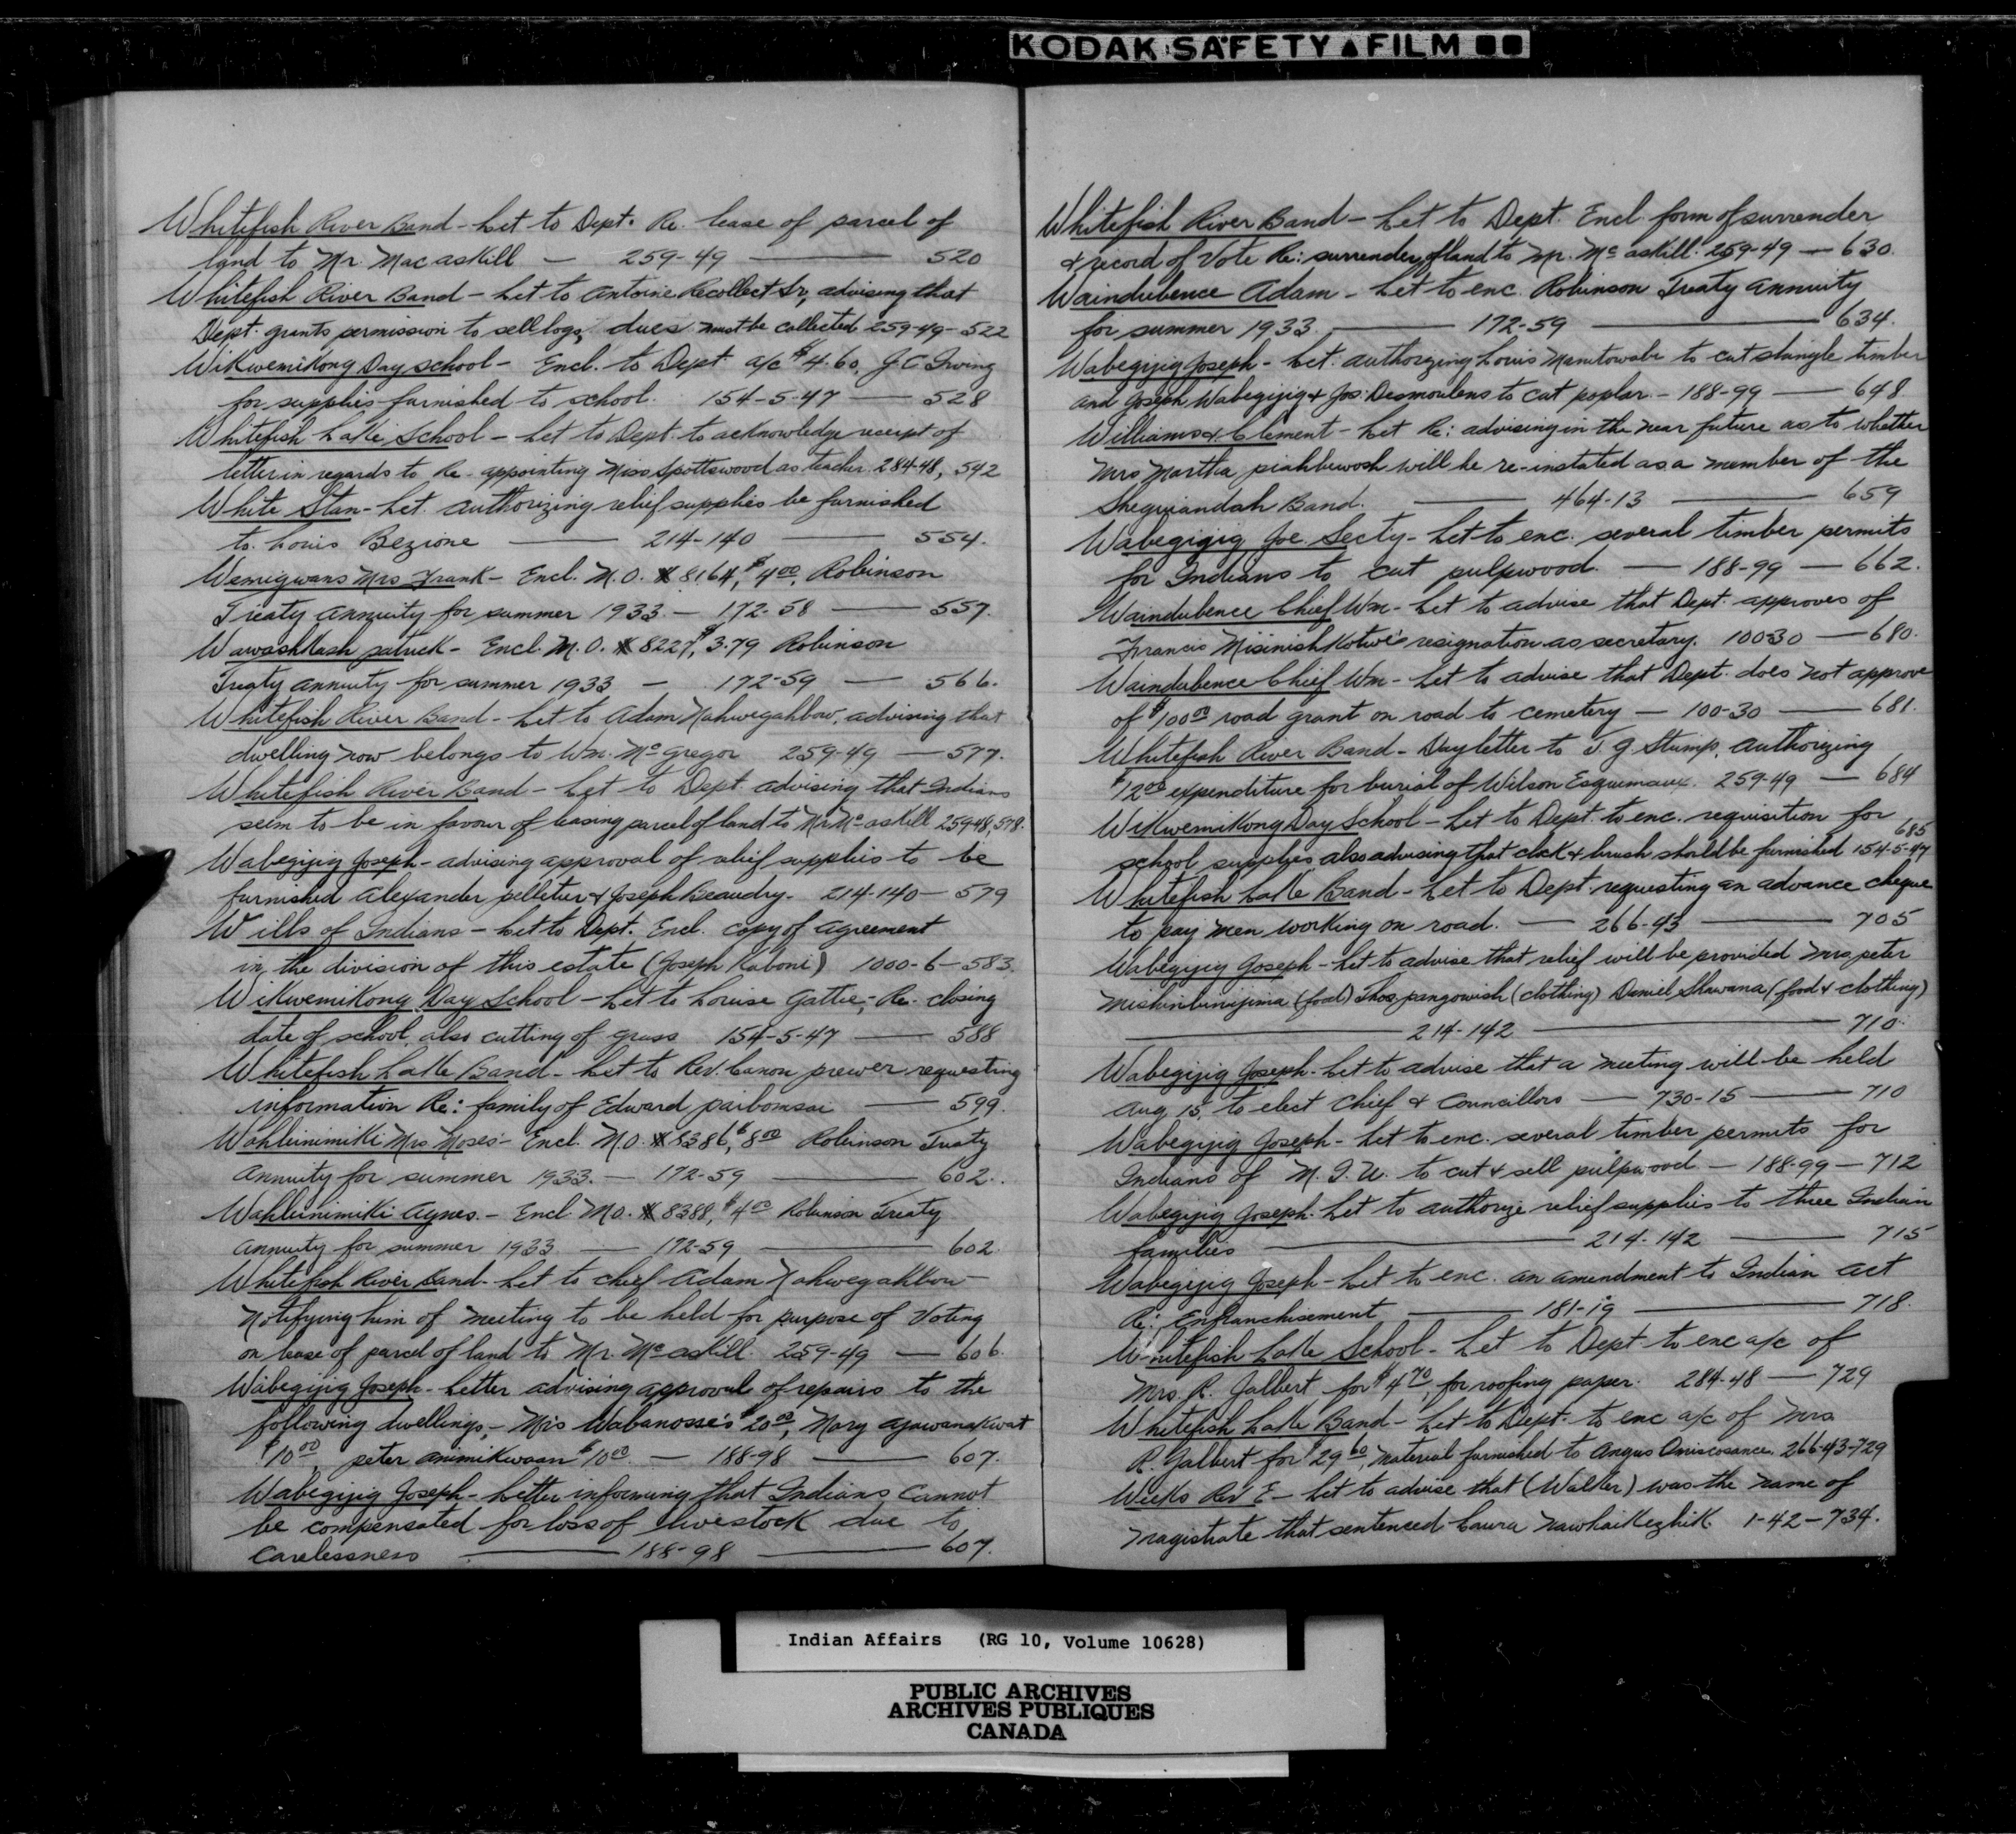 KODAK SAFETY FILM
Whitefish River Band - Let to Dept. Re. lease of parcel of
land to Mr. Macaskill — 259-49 — 520
Whitefish River Band - Let to Antoine Recollect Sr, advising that
Dept. grants permission to sell logs, dues must be collected 259-49-522
Wikwemikong Day school - Encl. to Dept a/c $4.60, J C Irving
for supplies furnished to school. 154-5-47 — 528
Whitefish Lake School - Let to Dept. to acknowledge receipt of
letter in regards to Re-appointing Miss Spottswood as teacher. 284-48, 542
White Stan - Let. authorizing relief supplies be furnished
to Louis Bezione — 214-140 — 554.
Wemigwans Mrs Frank - Encl. M.O. # 8164, $4.00, Robinson
Treaty annuity for summer 1933 — 172-58 — 557.
Wawashkash patrick - Encl. M.O. # 8227, $3.79 Robinson
Treaty annuity for summer 1933 — 172-59 — 566.
Whitefish River Band - Let to Adam Nahwegahbow, advising that
dwelling now belongs to Wm. McGregor 259-49 — 577.
Whitefish River Band - Let to Dept advising that Indians
seem to be in favour of leasing parcel of land to Mr McAskill 259-48, 578.
Wabegijig Joseph - advising approval of relief supplies to be
furnished Alexander pelletier & Joseph Beaudry - 214-140 - 579
Wills of Indians - Let to Dept. Encl. copy of agreement
in the division of this estate (Joseph Kaboni) 1000-6-583.
Wikwemikong Day School - Let to Louise Gattie, Re. closing
date of school, also cutting of grass 154-5-47 — 588
Whitefish Lake Band - Let to Rev. Canon prewer requesting
information Re: family of Edward paibomsai — 599.
Wahbinimiki Mrs Moses - Encl. M.O. # 8386, $8.00 Robinson Treaty
Annuity for summer 1933. — 172-59 — 602.
Wahbinimiki Agnes. - Encl. M.O. # 8388, $4.00 Robinson Treaty
Annuity for summer 1933 — 172-59 — 602.
Whitefish River Band - Let to chief Adam Nahwegahbow
Notifying him of meeting to be held for purpose of Voting
on lease of parcel of land to Mr. McAskill. 259-49 — 606.
Wabegijig Joseph - Letter advising approval of repairs to the
following dwellings, - Mrs Wabanosse's $20.00, Mary Ajawanakwat
$10.00, peter animikwaan $10.00. — 188-98 — 607.
Wabegijig Joseph - Letter informing that Indians cannot
be compensated for loss of livestock due to
carelessness — 188-98 — 607.
Whitefish River Band - Let to Dept. Encl form of surrender
& record of Vote Re: surrender of land to Mr. McAskill. 259-49 — 630.
Waindubence Adam - Let to enc. Robinson Treaty annuity
for summer 1933. — 172-59 — 634.
Wabegijig Joseph - Let. authorizing Louis Manitowabi to cut shingle timber
and Joseph Wabegijig & Jos. Desmoulens to cut poplar. - 188-99 — 648
Williams & Clement - Let Re: advising in the near future as to whether
Mrs Martha piahbewosh will be re-instated as a member of the
Sheguiandah Band. — 464-13 — 659
Wabegijig Joe. Secty - Let to enc. several timber permits
for Indians to cut pulpwood. — 188-99 — 662.
Waindubence Chief Wm - Let to advise that Dept. approves of
Francis Misinishkotwe's resignation as secretary. 100-30 — 680.
Waindubence Chief Wm - Let to advise that Dept. does not approve
of $100.00 road grant on road to cemetery — 100-30 — 681.
Whitefish River Band - Day letter to J. G. Stump, Authorizing
$12.00 expenditure for burial of Wilson Esquimaux. 259-49 — 684
Wikwemikong Day School - Let to Dept. to enc. requisition for
school supplies also advising that clock & brush should be furnished 154-5-47 685
Whitefish Lake Band - Let to Dept. requesting an advance cheque
to pay men working on road. — 266-43 — 705
Wabegijig Joseph - Let to advise that relief will be provided Mrs peter
Mishinbinijima (food) Thos pangowish (clothing) Daniel Shawana (food & clothing)
— 214-142 — 710.
Wabegijig Joseph - Let to advise that a meeting will be held
Aug 15, to elect Chief & Councillors — 730-15 — 710
Wabegijig Joseph - Let to enc. several timber permits for
Indians of M. I. U. to cut & sell pulpwood — 188-99 — 712
Wabegijig Joseph. Let to authorize relief supplies to three Indian
families — 214-142 — 715
Wabegijig Joseph - Let to enc. an amendment to Indian Act
Re: Enfranchisement — 181-19 — 718.
Whitefish Lake School - Let to Dept to enc a/c of
Mrs. R. Jalbert for $4.70, for roofing paper. 284-48 — 729
Whitefish Lake Band - Let to Dept. to enc a/c of Mrs
R. Jalbert for $29.60, material furnished to Angus Oniscosance. 266-43-729
Weeks Rev E - Let to advise that (Walker) was the name of
magistrate that sentenced Laura Nawkaikezhik 1-42 - 734.
Indian Affairs (RG 10, Volume 10628)
PUBLIC ARCHIVES
ARCHIVES PUBLIQUES
CANADA